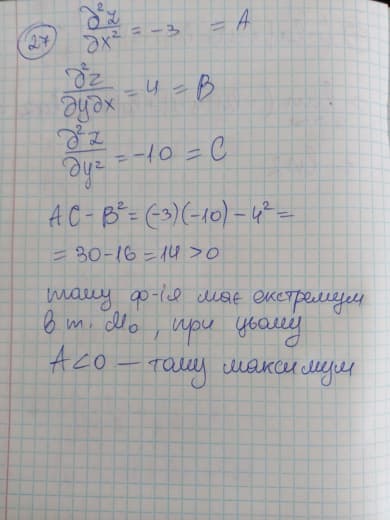 27 ∂²z/∂x² = -3 = A
∂²z/∂y∂x = 4 = B
∂²z/∂y² = -10 = C
AC - B² = (-3)(-10) - 4² =
= 30 - 16 = 14 > 0
тому ф-ія має екстремум
в т. M₀, при цьому
A < 0 — тому максимум